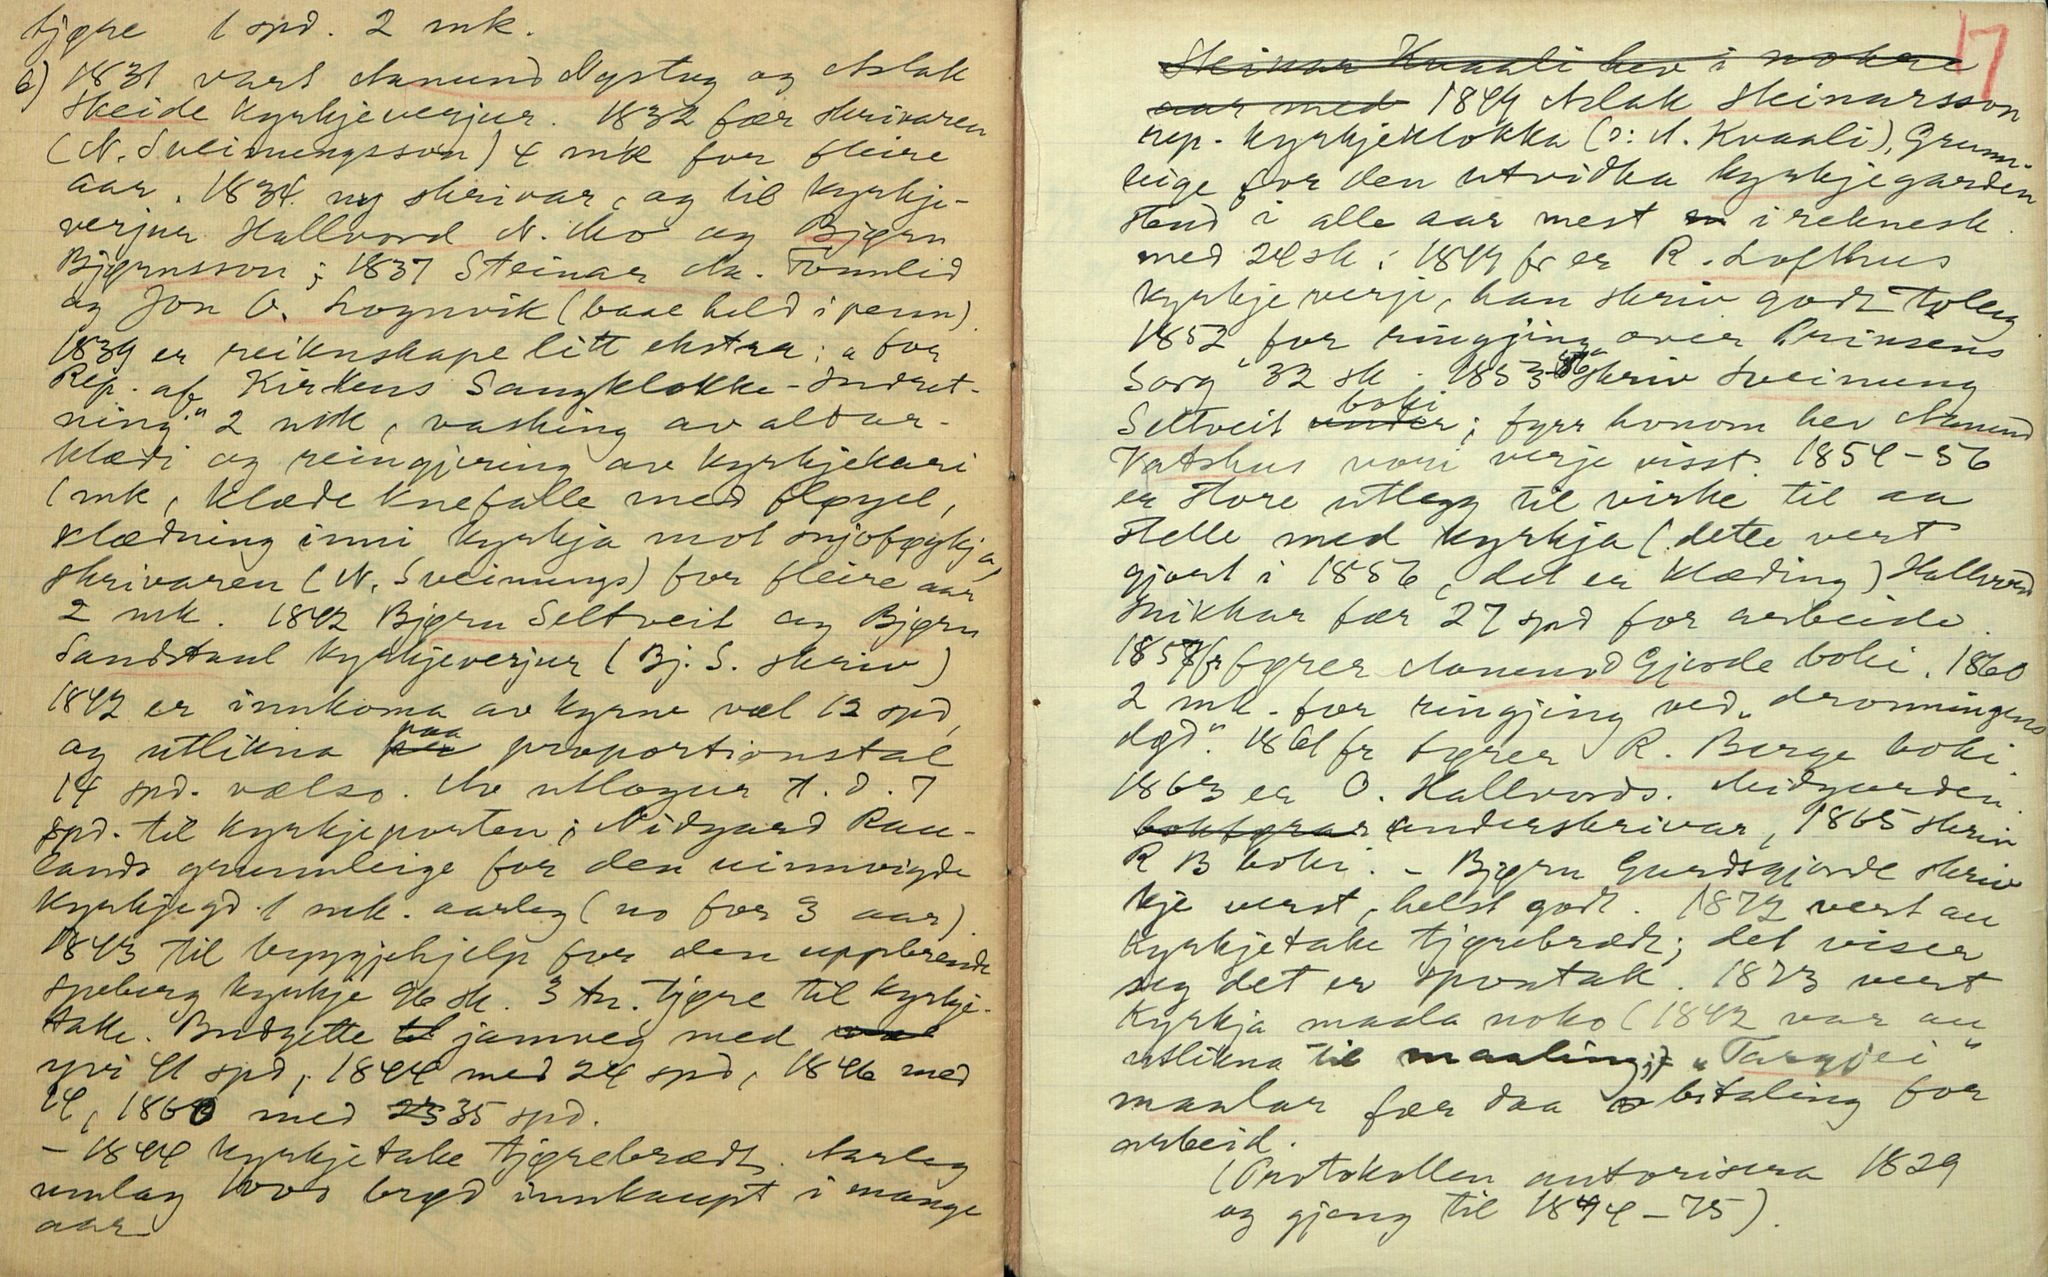 tjøre 1 spd. 2 mk.
6) 1831 vart Aanund Nystug og Aslak
Skeide kyrkjeverjur. 1832 fær skrivaren
(N. Sveinungsson) 4 mk for fleire
aar. 1834 ny skrivar, og til kyrkje-
verjur Hallvord N. Mo og Bjørn
Bjørnsson; 1837 Steinar Aa. Tomlid
og Jon O. Lognvik (baae held i penn).
1839 er reiknskape litt ekstra: a for
Rep. af Kirkens Sangklokke-Indret-
ning" 2 mk, vasking av altar-
klædi og reingjering av kyrkjekari
1 mk, klæde knefalle med fløyel,
klædning inni kyrkja mot snjoføykja,
skrivaren (N. Sveinungs) for fleire aar
2 mk. 1842 Bjørn Seltveit og Bjørn
Sandstaul kyrkjeverjur (Bj. S. skriv)
1842 er innkoma av kyrne vel 12 spd,
og utlikna paa proportionstal
14 spd. vælso. Av utlogur t. d. 7
spd. til kyrkjeporten; Nidgard Rau-
lands grunnleige for den uinnvigde
kyrkjegd. 1 mk. aarleg (no for 3 aar).
1843 til byggjehjelp for den uppbrende
Speberg kyrkje 96 sk. 3 tn. tjøre til kyrkje-
take. Budgette jamveg med
yvi 41 spd, 1844 med 24 spd, 1846 med
14, 1860 med 35 spd.
- 1844 kyrkjetake tjørebrædt. Aarleg
umlag vert brød innkaupt i mange
aar
17
Steinar Kvaali hev i nokre
aar med 1844 Aslak Steinarsson
rep. kyrkjeklokka (ɔ: A. Kvaali), Grunn-
leige for den utvidka kyrkjegarden
stend i alle aar mest i reknesk.
med 24 sk; 1849 fr er R. Lofthus
kyrkjeverje, han skriv godt toleg
1852 "for ringjing over Prinsens
Sorg" 32 sk. 1853-56 skriv Sveinung
Seltveit boki; fyrr honom hev Aanund
Vatshus vori verje visst. 1854-56
er store utlegg til virke til aa
stelle med kyrkja (dette vert
gjort i 1856, det er klæding) Hallvord
Snikkar fær 27 spd for arbeide.
1857 fr fører Aanund Gjerde boki. 1860
2 mk. for ringjing ved "dronningens
død". 1861 fr fører R. Berge boki
1863 er O. Hallvords. Midgarden
bokførar underskrivar, 1865 skriv
R B boki. - Bjørn Gurdsgjerde skriv
kje verst, helst godt. 1872 vert au
kyrkjetake tjørebrædt; det viser
seg det er spontak. 1873 vert
kyrkja maala noko (1842 var au
utlikna til maaling); "Targjei"
maalar fær daa bitaling for
arbeid.
(Protokollen autorisera 1829
og gjeng til 1874-75).